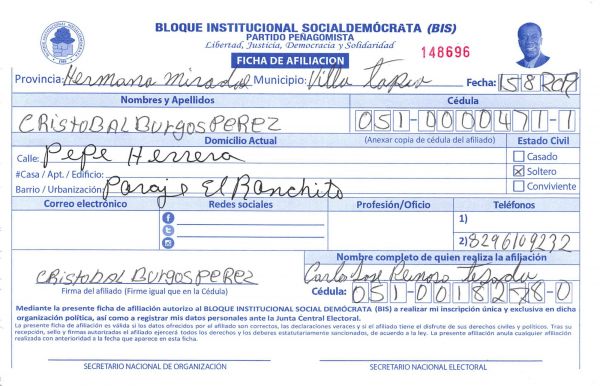 BLOQUE INSTITUCIONAL SOCIALDEMÓCRATA (BIS)
PARTIDO PEÑAGOMISTA
Libertad, Justicia, Democracia y Solidaridad
FICHA DE AFILIACION
148696
Provincia: Hermana Mirabal Municipio: Villa Tapia Fecha: 15 8 2019
Nombres y Apellidos Cédula
CRISTOBAL BURGOS PEREZ 051-0000471-1
Domicilio Actual (Anexar copia de cédula del afiliado) Estado Civil
Calle: Pepe Herrera Casado
#Casa / Apt. / Edificio: X Soltero
Barrio / Urbanización: Paraje El Ranchito Conviviente
Correo electrónico Redes sociales Profesión/Oficio Teléfonos
1)
2) 8296109232
Nombre completo de quien realiza la afiliación
CRISTOBAL BURGOS PEREZ Carlos Jose Reinoso
Firma del afiliado (Firme igual que en la Cédula) Cédula: 051-0018278-0
Mediante la presente ficha de afiliación autorizo al BLOQUE INSTITUCIONAL SOCIAL DEMÓCRATA (BIS) a realizar mi inscripción única y exclusiva en dicha
organización política, así como a registrar mis datos personales ante la Junta Central Electoral.
La presente ficha de afiliación es válida si los datos ofrecidos por el afiliado son correctos, las declaraciones veraces y si el afiliado tiene el disfrute de sus derechos civiles y políticos. Tras su
recepción, sello y firmas autorizadas el afiliado ejercerá todos los derechos y los deberes estatutariamente sancionados, de acuerdo a la ley. La presente afiliación anula cualquier afiliación
realizada con anterioridad a la fecha que aparece en esta ficha.
SECRETARIO NACIONAL DE ORGANIZACIÓN SECRETARIO NACIONAL ELECTORAL